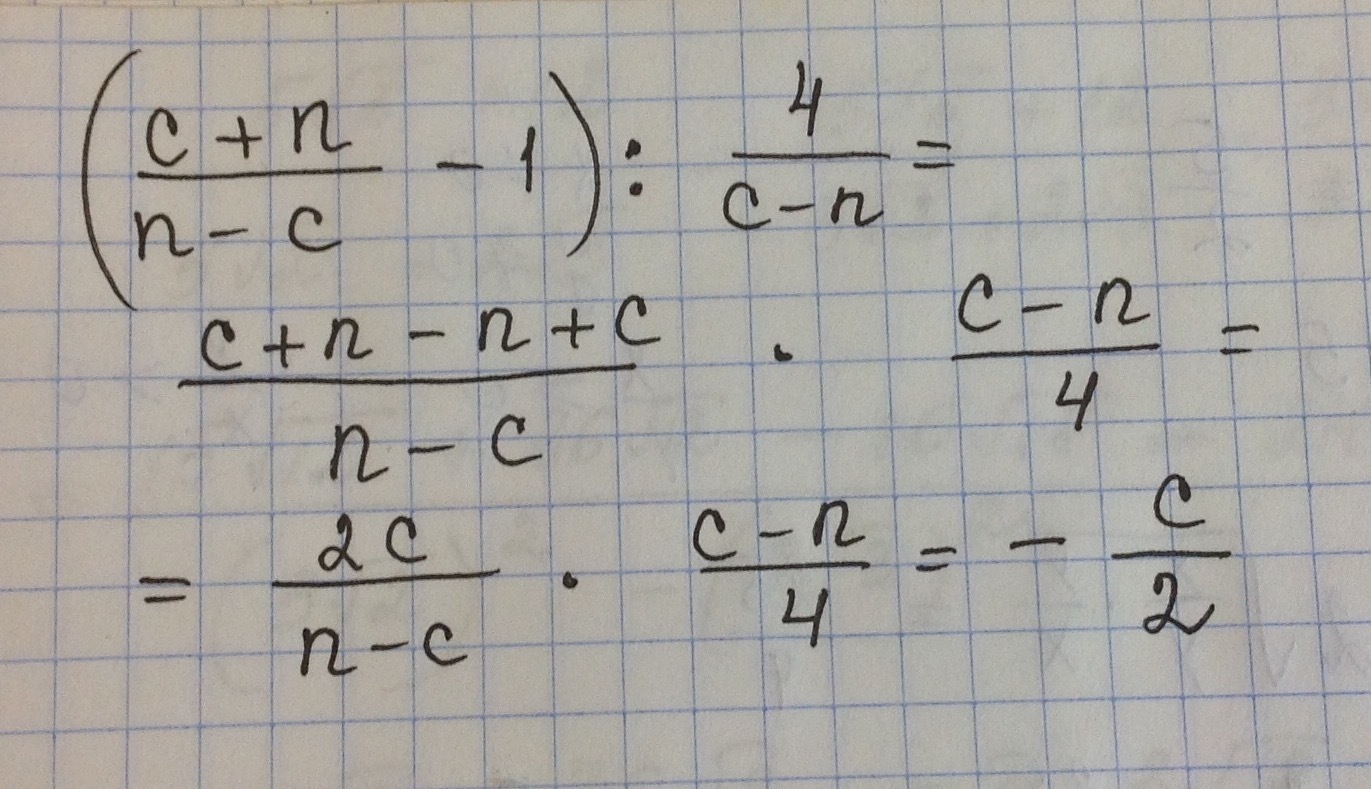 (c+n/n-c - 1) : 4/c-n =
c+n-n+c/n-c · c-n/4 =
= 2c/n-c · c-n/4 = - c/2